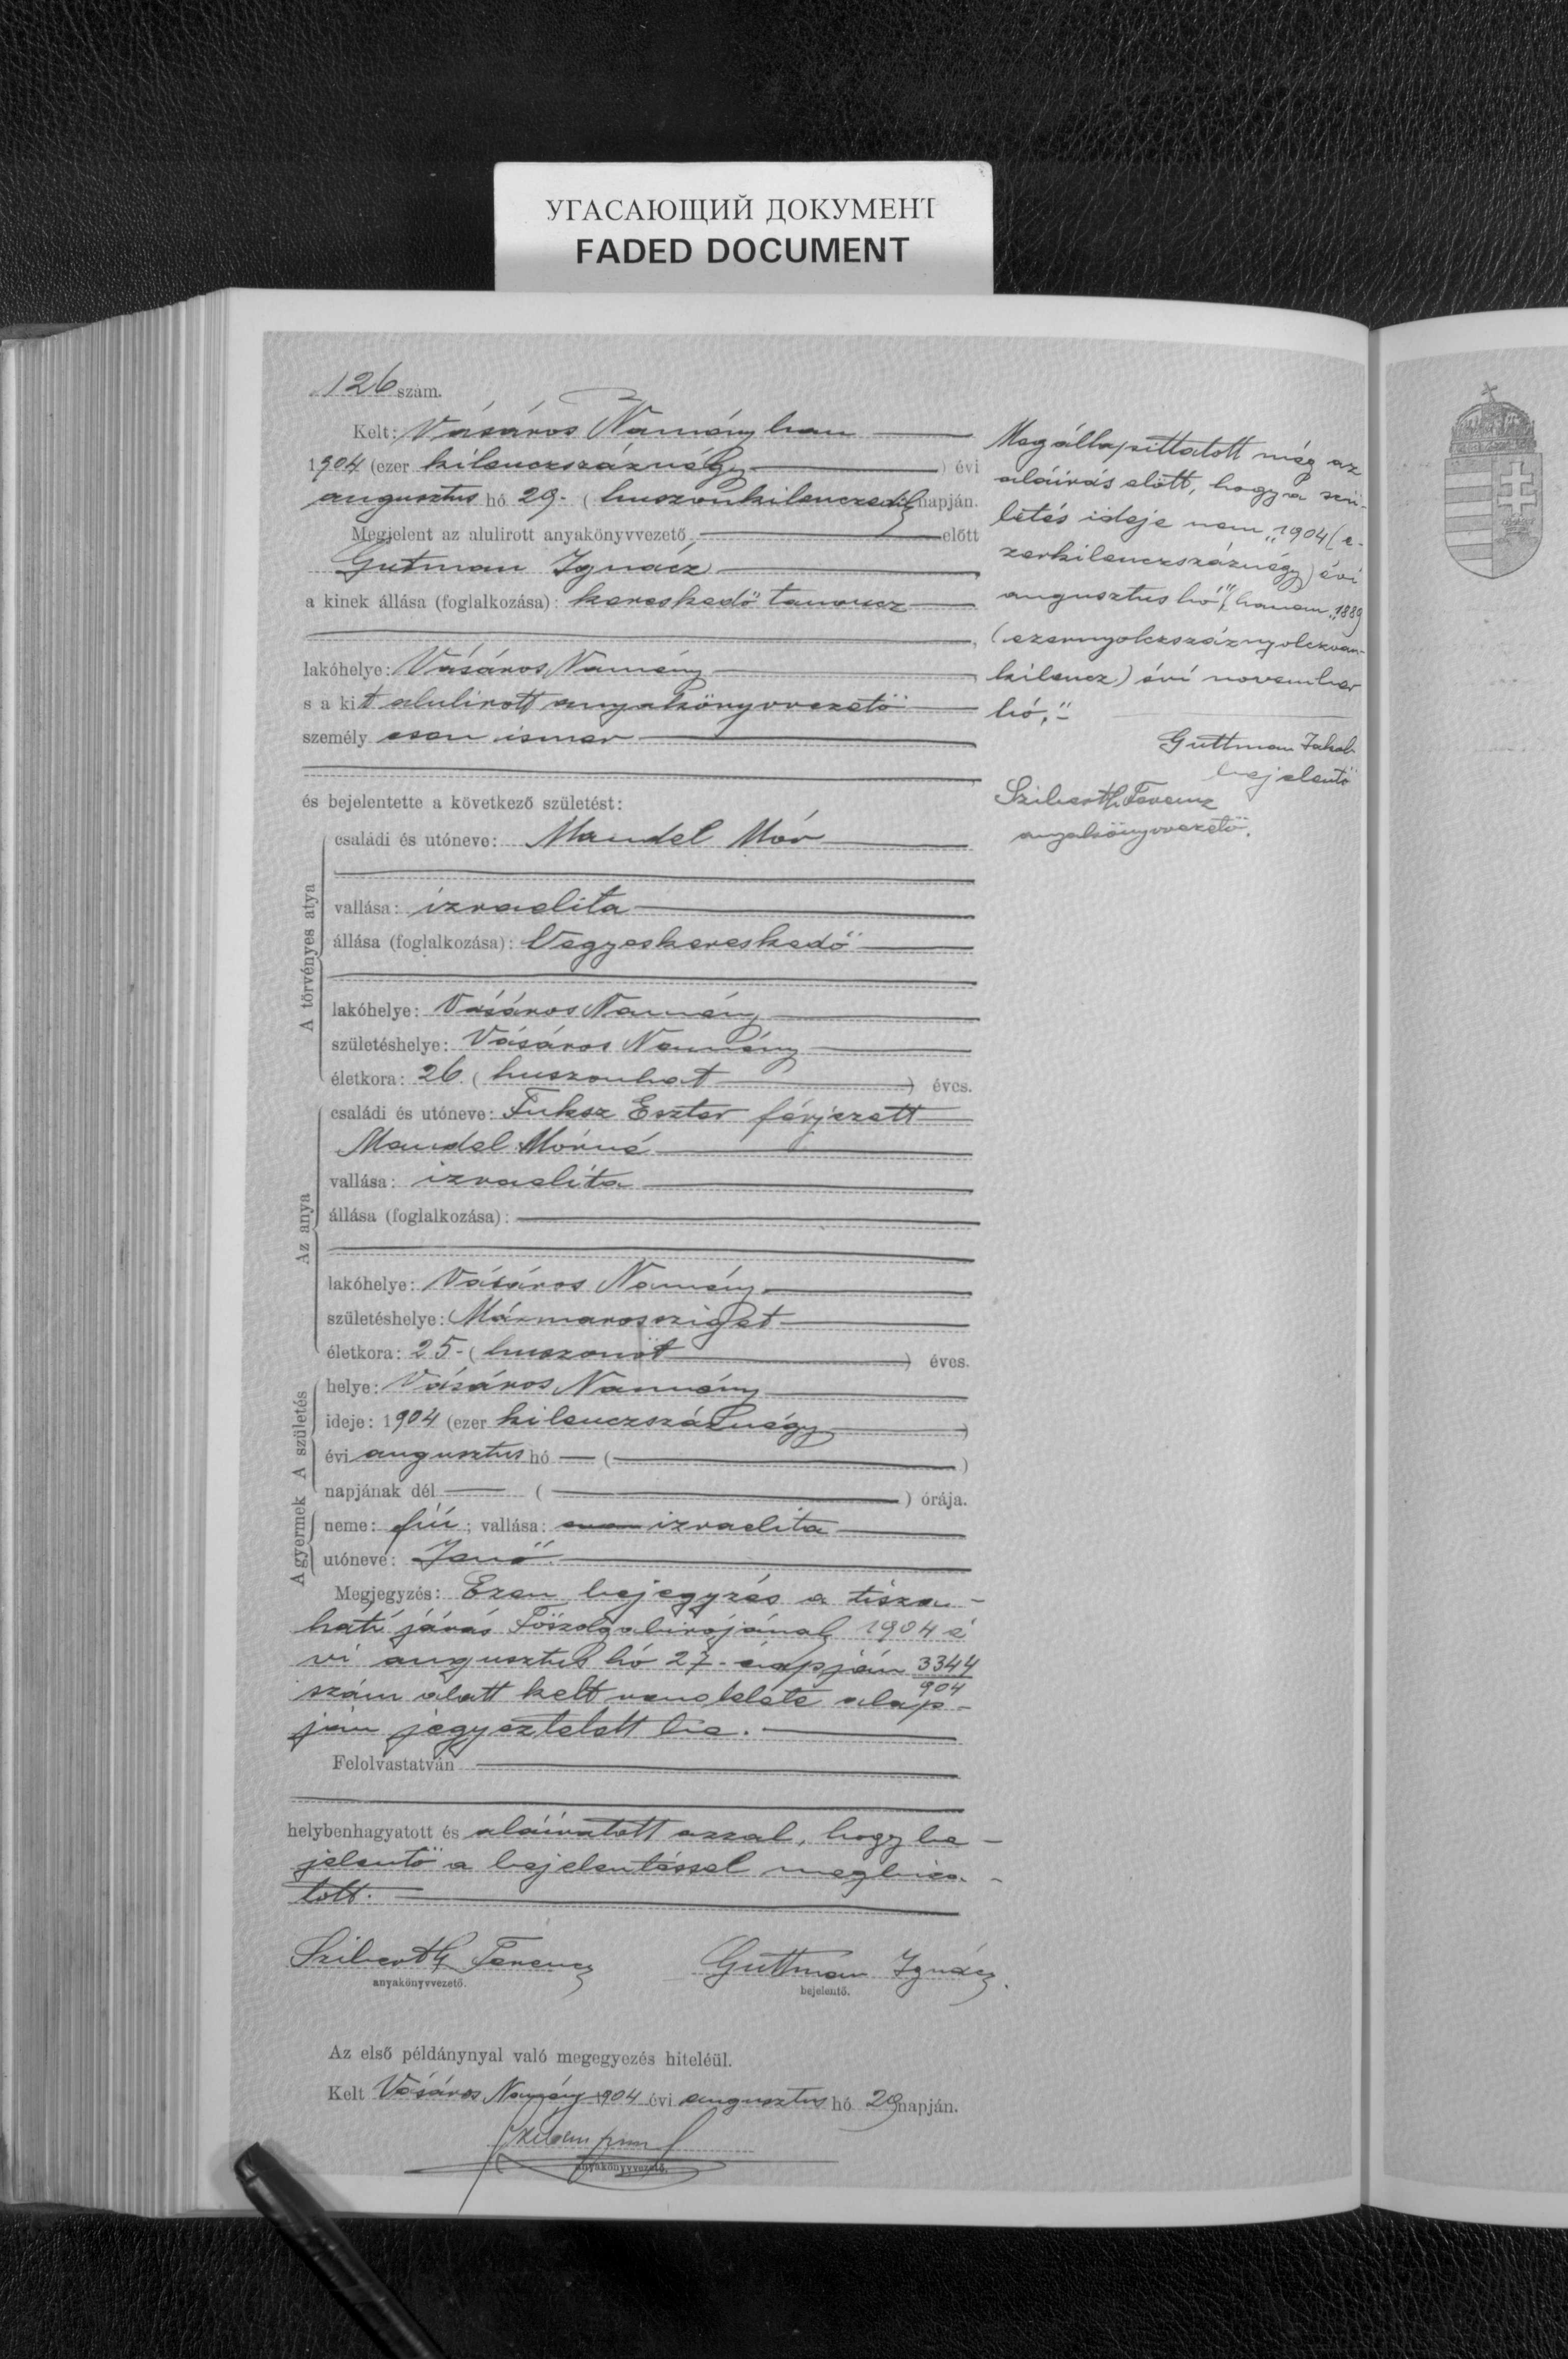 УГАСАЮЩИЙ ДОКУМЕНТ
FADED DOCUMENT
126 szám.
Kelt: Vásáros Naményban
1904 (ezer kilenczszáznégy) évi
augusztus hó 29- (huszonkilenczedik napján.
Megjelent az alulirott anyakönyvvezető előtt
Gutman Ignácz
a kinek állása (foglalkozása): kereskedő tanoncz
lakóhelye: Vásáros Namény
s a kit alulirott anyakönyvvezető
személyesen ismer
és bejelentette a következő születést:
A törvényes atya
családi és utóneve: Mandel Mór
vallása: izraelita
állása (foglalkozása): Vegyeskereskedő
lakóhelye: Vásáros Namény
születéshelye: Vásáros Namény
életkora: 26. (huszonhat) éves.
Az anya
családi és utóneve: Fuksz Eszter férjezett
Mandel Mórné
vallása: izraelita
állása (foglalkozása):
lakóhelye: Vásáros Namény
születéshelye: Mármarossziget
életkora: 25- (huszonöt) éves.
A születés
helye: Vásáros Namény
ideje: 1904 (ezer kilenczszáznégy)
évi augusztus hó — ( )
napjának dél — ( ) órája.
A gyermek
neme: fiú; vallása: izraelita
utóneve: Jenő
Megjegyzés: Ezen bejegyzés a tiszan-
háti járás Főszolgabirójának 1904 é
vi augusztus hó 27-napján 3344/904
szám alatt kelt rendelete alap-
ján jegyeztetett be.
Felolvastatván
helybenhagyatott és aláiratott azzal, hogy be-
jelentő a bejelentéssel megbiza-
tott.
Sziberth Ferencz
anyakönyvvezető.
Guttman Ignácz.
bejelentő.
Az első példánynyal való megegyezés hiteléül.
Kelt Vásáros Namény 1904 évi augusztus hó 29 napján.
anyakönyvvezető.
Megállapittatott még az
aláirás előtt, hogy a szü-
letés ideje nem „1904 (e-
zerkilenczszáznégy) évi
augusztus hó", hanem „1889
(ezernyolczszáznyolczvan-
kilencz) évi november
hó."
Guttman Jakab
bejelentő
Sziberth Ferencz
anyakönyvvezető.